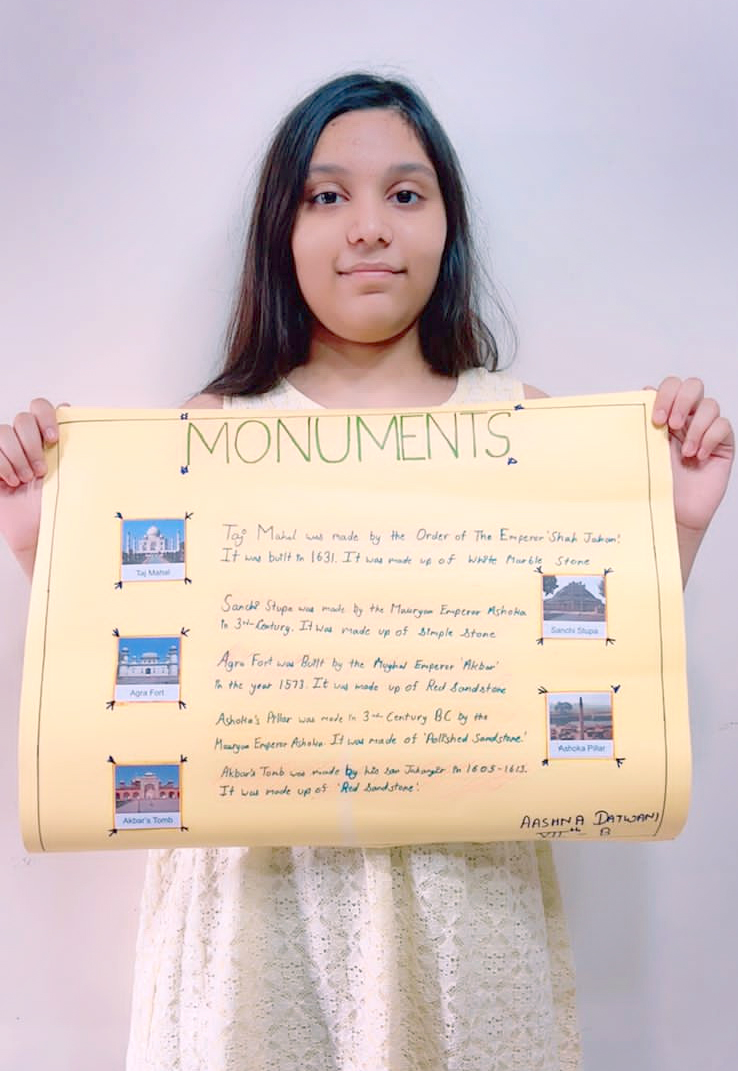 MONUMENTS
Taj Mahal was made by the Order of The Emperor 'Shah Jahan'.
It was built in 1631. It was made up of White Marble Stone
Taj Mahal
Sanchi Stupa was made by the Mauryan Emperor Ashoka
in 3rd Century. It was made up of Simple Stone
Sanchi Stupa
Agra Fort was Built by the Mughal Emperor 'Akbar'
in the year 1573. It was made up of Red Sandstone
Agra Fort
Ashoka's Pillar was made in 3rd Century BC by the
Mauryan Emperor Ashoka. It was made of 'Pollished Sandstone.'
Ashoka Pillar
Akbar's Tomb was made by his son Jahangir in 1605-1613.
It was made up of 'Red Sandstone'.
Akbar's Tomb
AASHNA DATWANI
VIIth - B